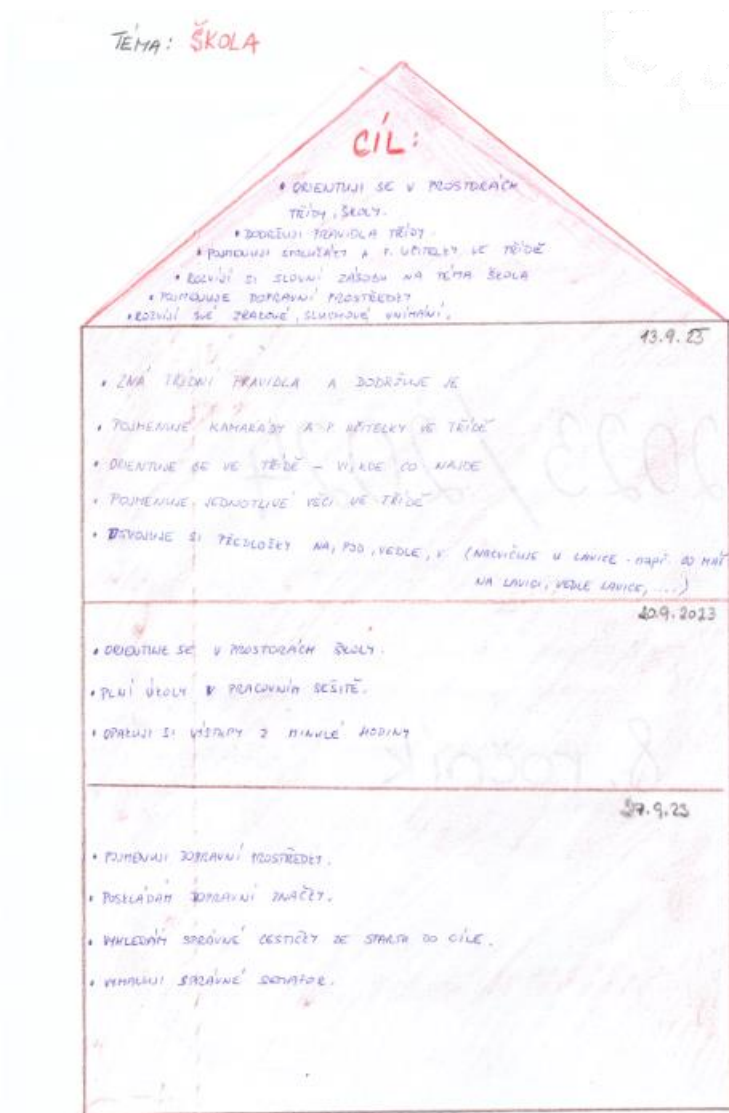 TÉMA: ŠKOLA
CÍL:
• ORIENTUJI SE V PROSTORÁCH
TŘÍDY, ŠKOLY.
• DODRŽUJI PRAVIDLA TŘÍDY.
• POJMENUJI SPOLUŽÁKY A P. UČITELKY VE TŘÍDĚ
• ROZVÍJÍ SI SLOVNÍ ZÁSOBU NA TÉMA ŠKOLA
• POJMENUJE DOPRAVNÍ PROSTŘEDKY
• ROZVÍJÍ SVÉ ZRAKOVÉ, SLUCHOVÉ VNÍMÁNÍ.
13.9.23
• ZNÁ TŘÍDNÍ PRAVIDLA A DODRŽUJE JE
• POJMENUJE KAMARÁDY A P. UČITELKY VE TŘÍDĚ
• ORIENTUJE SE VE TŘÍDĚ - VÍ, KDE CO NAJDE
• POJMENUJE JEDNOTLIVÉ VĚCI VE TŘÍDĚ
• OSVOJUJE SI PŘEDLOŽKY NA, POD, VEDLE, V (NACVIČUJE U LAVICE - např. CO MÁŠ
NA LAVICI, VEDLE LAVICE, ....)
20.9.2023
• ORIENTUJE SE V PROSTORÁCH ŠKOLY.
• PLNÍ ÚKOLY V PRACOVNÍM SEŠITĚ.
• OPAKUJI SI VÝSTUPY Z MINULÉ HODINY
27.9.23
• POJMENUJI DOPRAVNÍ PROSTŘEDKY.
• POSKLÁDÁM DOPRAVNÍ ZNAČKY.
• VYHLEDÁM SPRÁVNÉ CESTIČKY ZE STARTU DO CÍLE.
• VYMALUJI SPRÁVNĚ SEMAFOR.
2023/2024
8. ročník